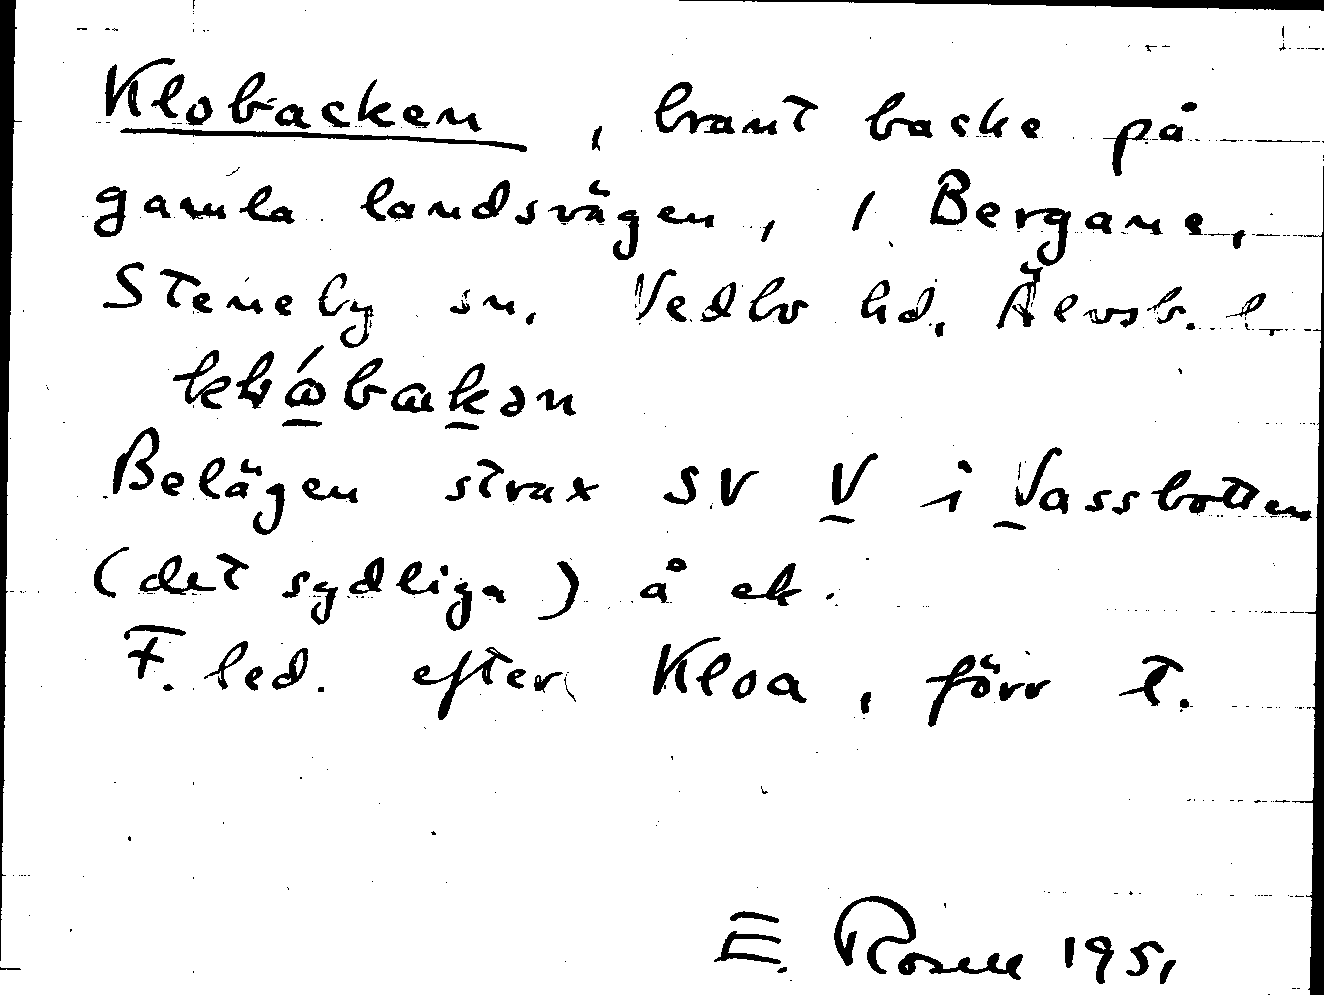 Klobacken, brant backe på
gamla landsvägen, i Bergane,
Steneby sn. Vedbo hd. Älvsb. l.
Belägen strax SV V i Vassbotten
(det sydliga) å ek.
F. led. efter Kloa, förr t.
E. Rosell 1951